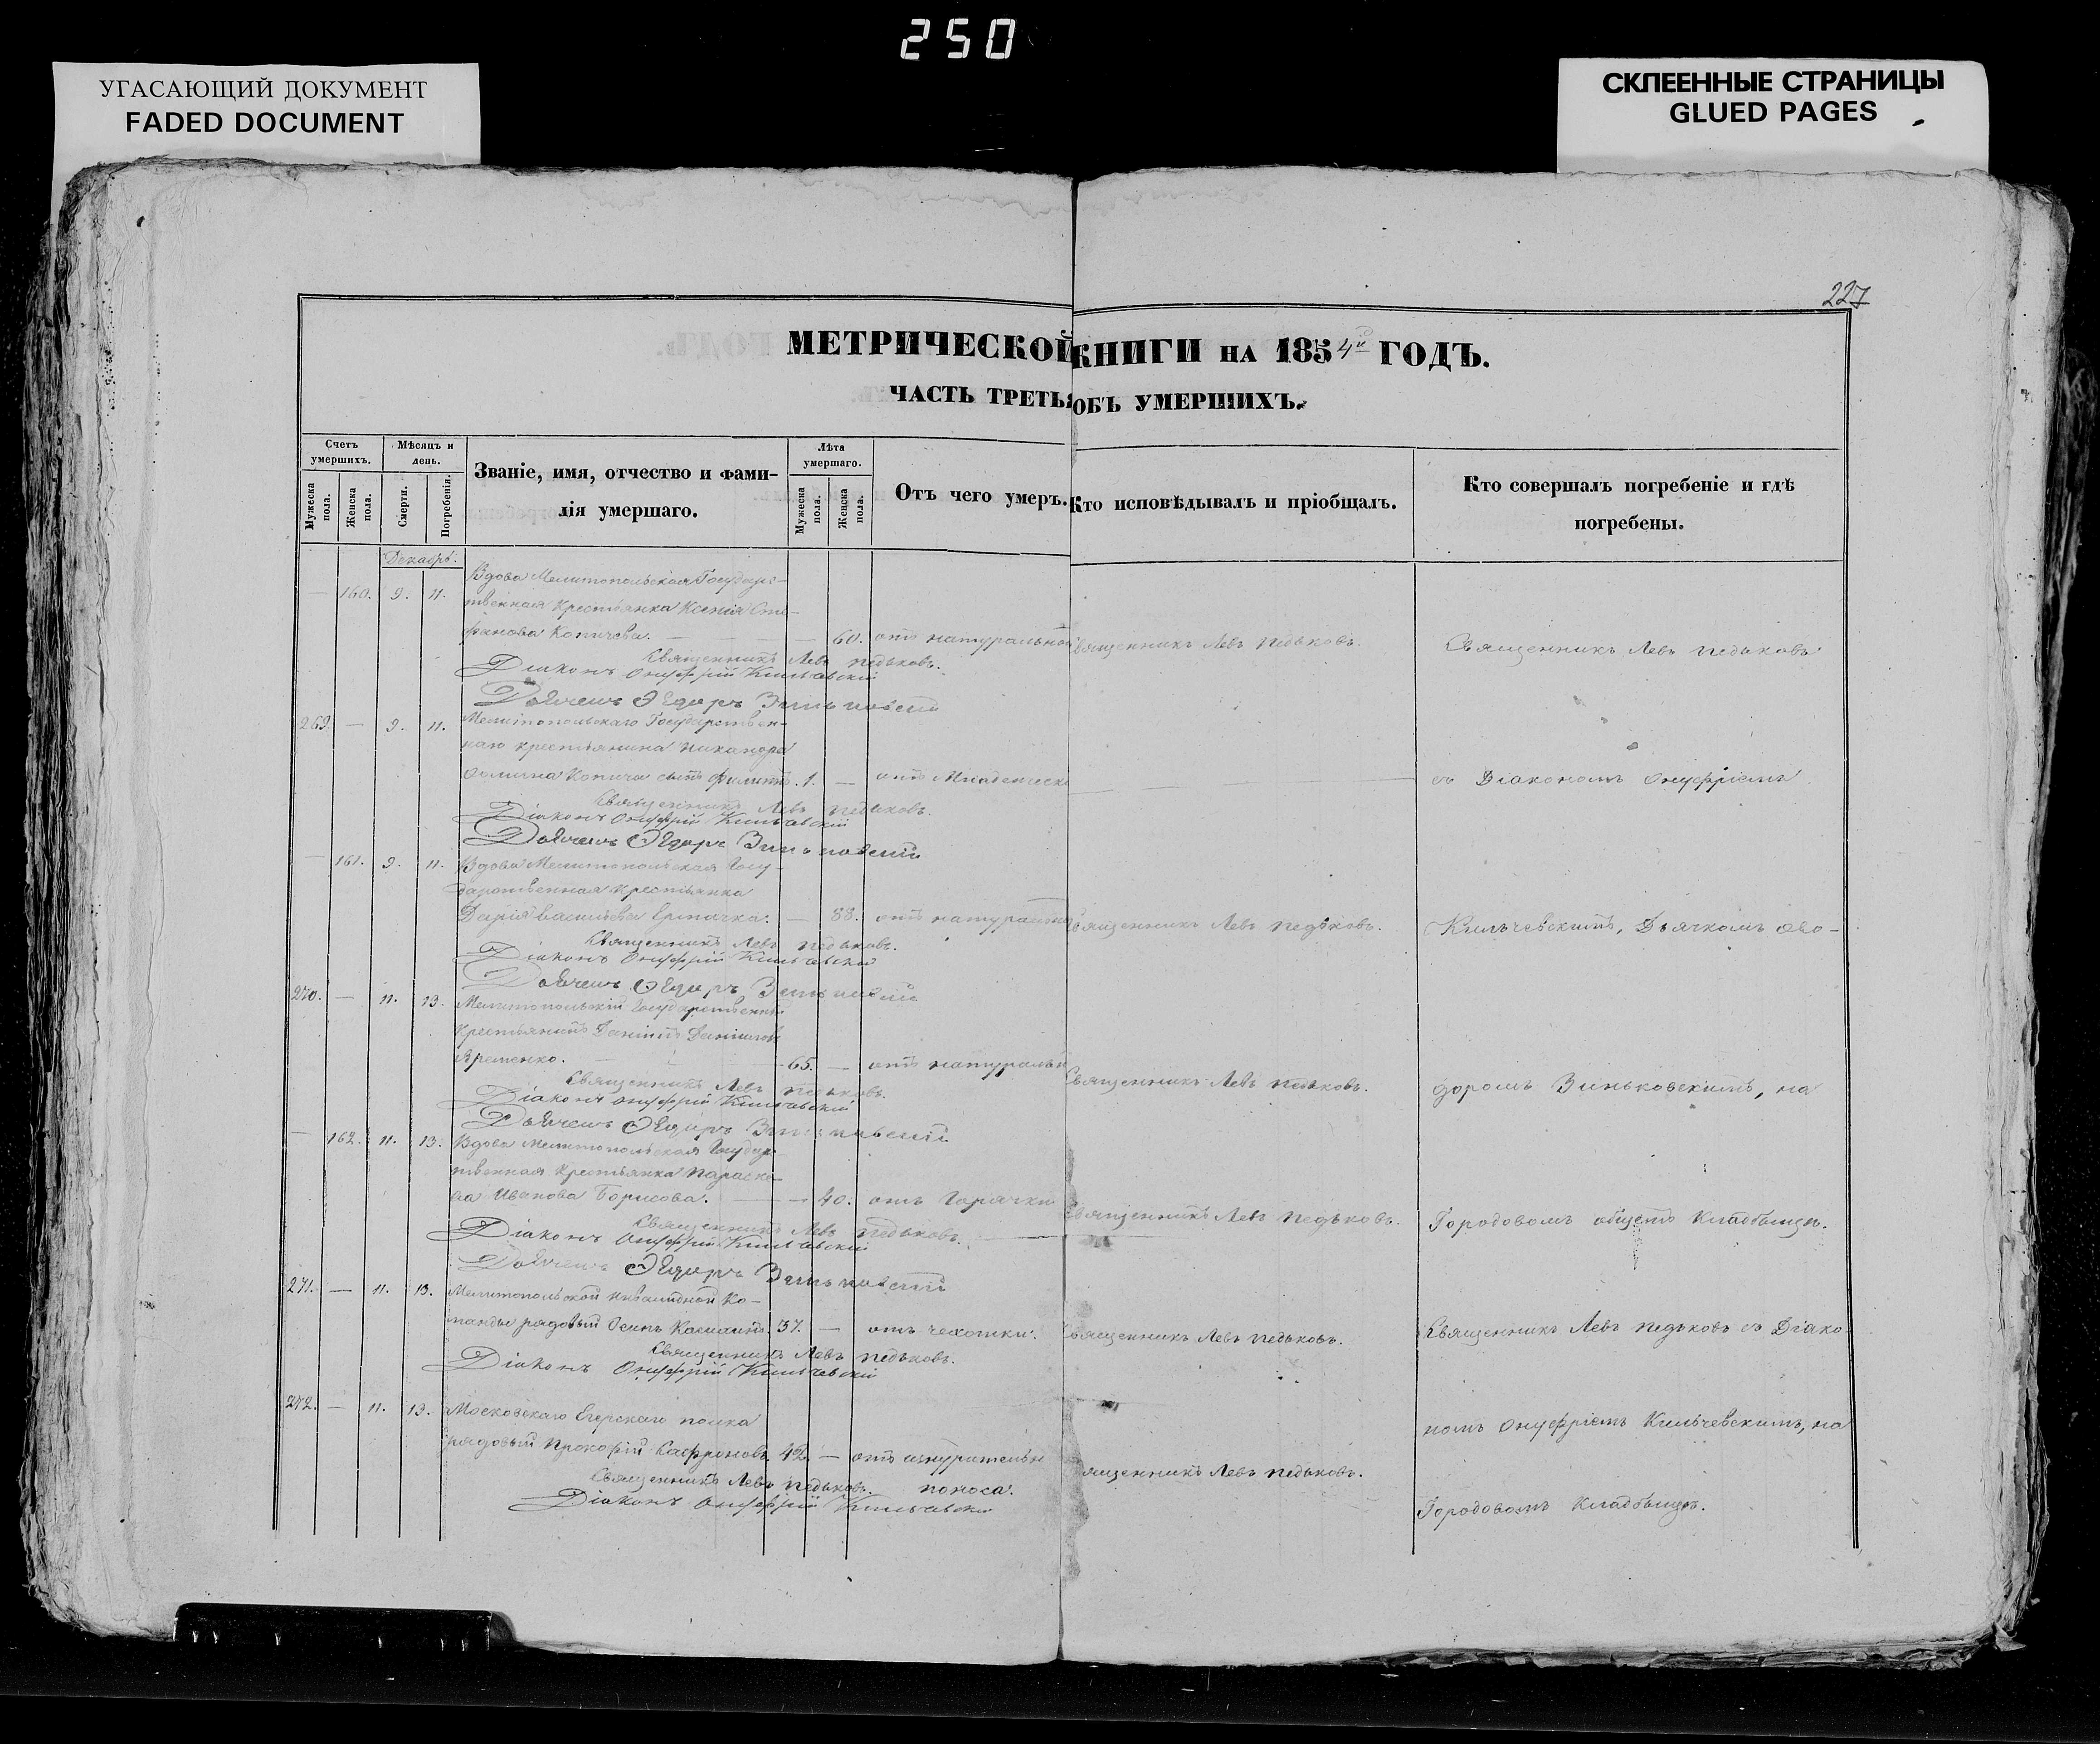 250
УГАСАЮЩИЙ ДОКУМЕНТ
FADED DOCUMENT
СКЛЕЕННЫЕ СТРАНИЦЫ
GLUED PAGES
227
МЕТРИЧЕСКОЙ КНИГИ НА 1854й ГОДЪ.
ЧАСТЬ ТРЕТЬЯ ОБЪ УМЕРШИХЪ.
Счетъ умершихъ.
Мужеска пола.
Женска пола.
Мѣсяцъ и день.
Смерти.
Погребенія.
Званіе, имя, отчество и фами-
лія умершаго.
Лѣта умершаго.
Мужеска пола.
Женска пола.
Отъ чего умеръ.
Кто исповѣдывалъ и пріобщалъ.
Кто совершалъ погребеніе и гдѣ
погребены.
Декабрь.
— 160. 9. 11. Вдова Мелитопольская Государс-
твенная Крестьянка Ксенія Сте-
фанова Копичева. — 60. отъ натуральной Священникъ Левъ Педьковъ. Священникъ Левъ Педьковъ
Священникъ Левъ Педьковъ.
Діаконъ Онуфрій Кильчевскій
Дьячекъ Ѳедоръ Зиньковскій
269. — 9. 11. Мелитопольскаго Государствен-
наго крестьянина Никандра
Копича сынъ Филипъ. 1. — отъ Младенческ съ Діакономъ Онуфріемъ
Священникъ Левъ Педьковъ.
Діаконъ Онуфрій Кильчевскій
Дьячекъ Ѳедоръ Зиньковскій
— 161. 9. 11. Вдова Мелитопольская Госу-
дарственная крестьянка
Дарія Васильева — 88. отъ натуральной Священникъ Левъ Педьковъ. Кильчевскимъ, Дьячкомъ Ѳео-
Священникъ Левъ Педьковъ.
Діаконъ Онуфрій Кильчевскій
Дьячекъ Ѳедоръ Зиньковскій
270. — 11. 13. Мелитопольскій Государственный
Крестьянинъ Даніилъ Даніиловъ
Яременко. 65. — отъ натуральн Священникъ Левъ Педьковъ. доромъ Зиньковскимъ, на
Священникъ Левъ Педьковъ.
Діаконъ Онуфрій Кильчевскій
Дьячекъ Ѳедоръ Зиньковскій
— 162. 11. 13. Вдова Мелитопольская Государс-
твенная Крестьянка Параске-
ва Иванова Борисова. — 40. отъ Горячки Священникъ Левъ Педьковъ. Городовомъ общемъ Кладбищѣ.
Священникъ Левъ Педьковъ.
Діаконъ Онуфрій Кильчевскій
Дьячекъ Ѳедоръ Зиньковскій
271. — 11. 13. Мелитопольской Инвалидной Ко-
манды рядовый Осипъ 37. — отъ чехотки. Священникъ Левъ Педьковъ. Священникъ Левъ Педьковъ съ Діако-
Священникъ Левъ Педьковъ.
Діаконъ Онуфрій Кильчевскій
272. — 11. 13. Московскаго Егерскаго полка номъ Онуфріемъ Кильчевскимъ, на
рядовый Прокофій Сафроновъ 42. — отъ изнурительн Священникъ Левъ Педьковъ.
Священникъ Левъ Педьковъ. поноса. Городовомъ Кладбищѣ.
Діаконъ Онуфрій Кильчевскій